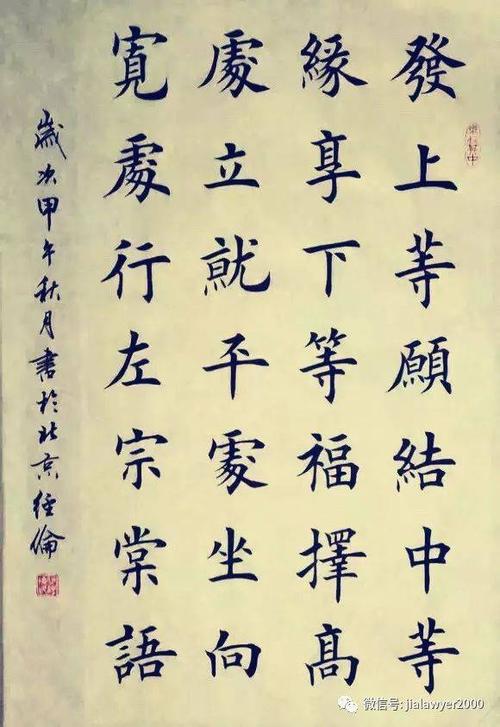 發上等願結中等
緣享下等福擇高
處立就平處坐向
寬處行左宗棠語
歲次甲午秋月書於北京經倫
微信号: jialawyer2000